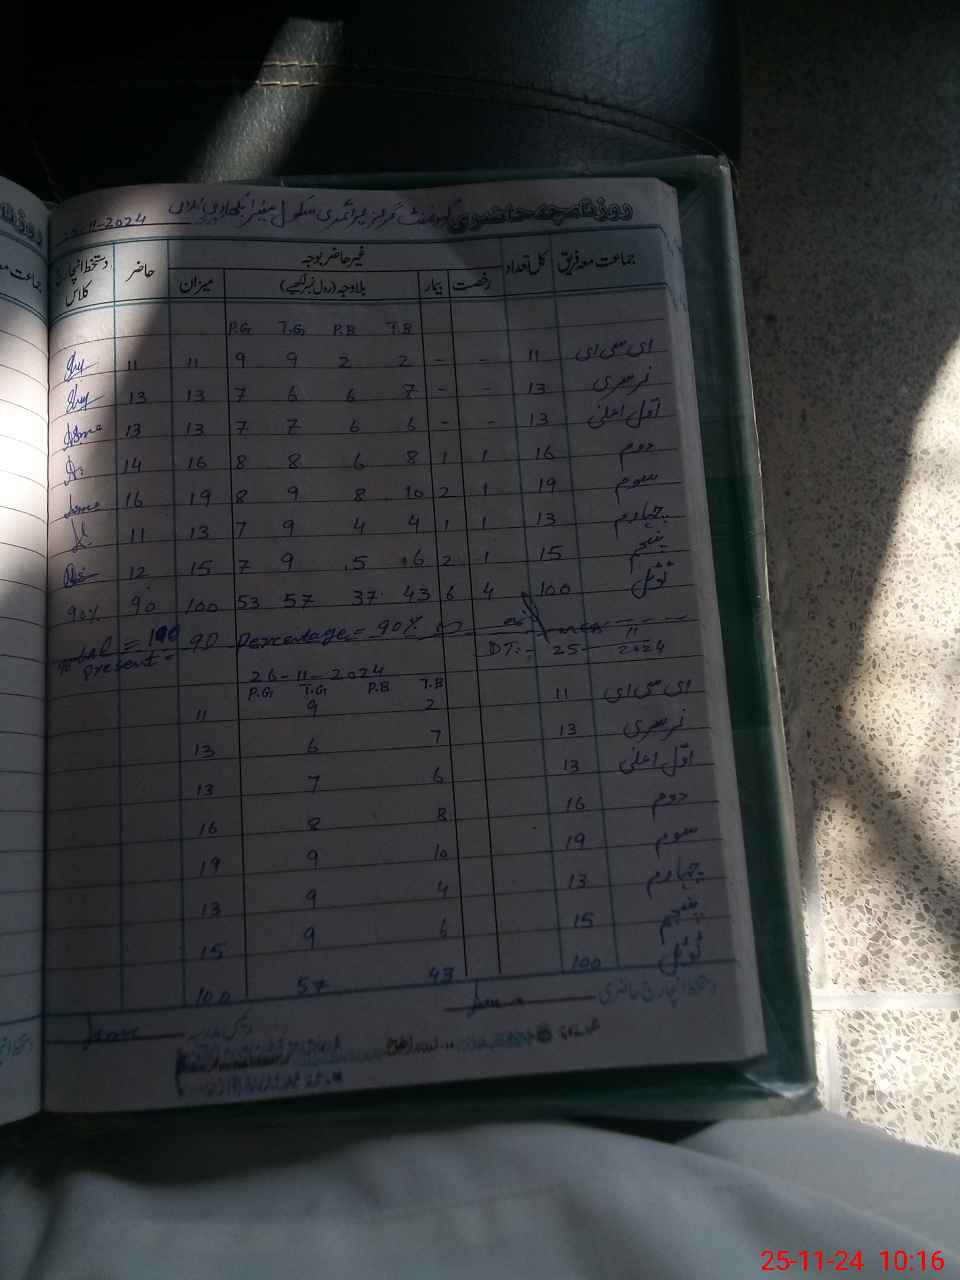 روزنامچہ حاضری گورنمنٹ گرلز پرائمری سکول 11-2024
جماعت معہ فریق کل تعداد غیر حاضر بوجہ حاضر دستخط انچارج کلاس
رخصت بیمار بلاوجہ (رول نمبر لکھیے) میزان
P.G T.G P.B T.B
ای سی ای 11 - - 2 2 9 9 11 11
نرسری 13 - - 7 6 6 7 13 13
اوّل اعلیٰ 13 - - 6 6 7 7 13 13
دوم 16 1 1 8 6 8 8 16 14
سوم 19 1 2 10 8 9 8 19 16
چہارم 13 1 1 4 4 9 7 13 11
پنجم 15 1 2 6 5 9 7 15 12
ٹوٹل 100 4 6 43 37 57 53 100 90 90%
Total = 100
Present = 90 Percentage = 90%
DT:- 25- 11 2024
26-11-2024
P.G T.G P.B T.B
ای سی ای 11 2 9 11
نرسری 13 7 6 13
اوّل اعلیٰ 13 6 7 13
دوم 16 8 8 16
سوم 19 10 9 19
چہارم 13 4 9 13
پنجم 15 6 9 15
ٹوٹل 100 43 57 100
دستخط انچارج حاضری
25-11-24 10:16